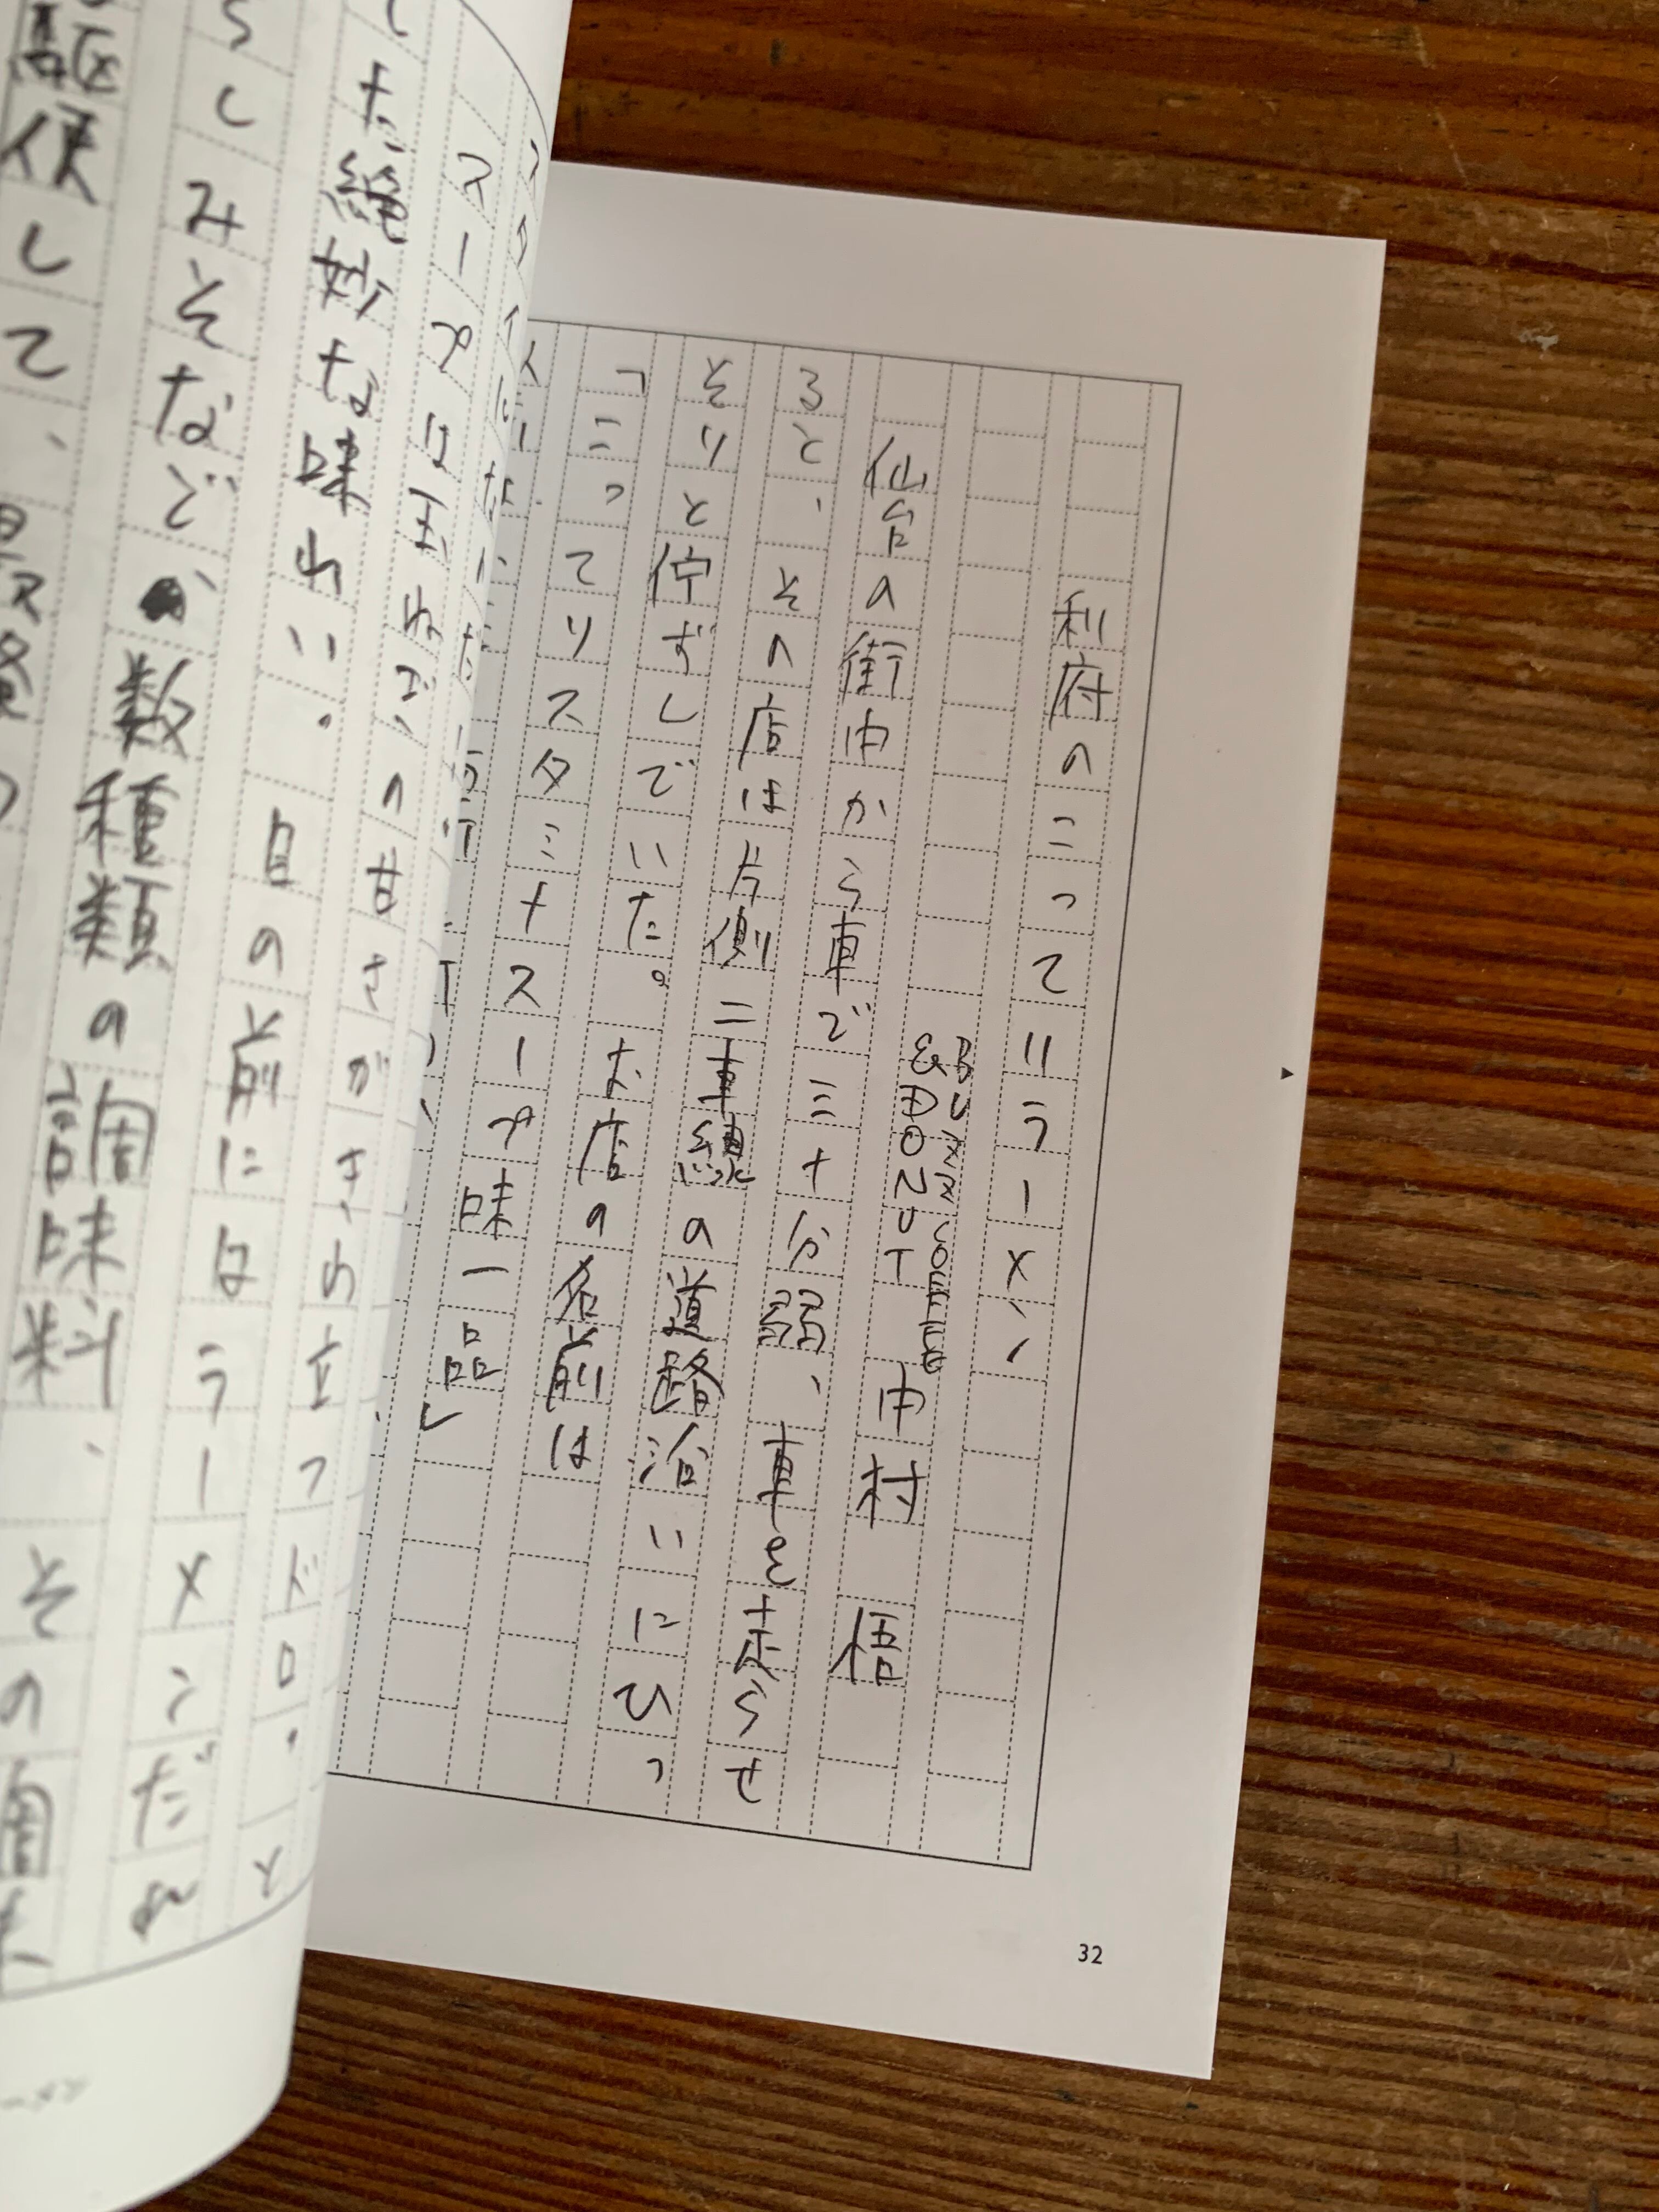 利府のこってりラーメン
BUZZ COFFEE
&DONUT 中村 悟
仙台の街中から車で三十分弱、車を走らせ
ると、その店は片側二車線の道路沿いにひっ
そりと佇ずしでいた。お店の名前は
「こってりスタミナスープ味一品」
スープは玉ねぎの甘さがきわ立つドロっと
した絶妙な味わい。目の前にはラーメンこだれ
らしみそなどの数種類の調味料、その調
駆使して、
32